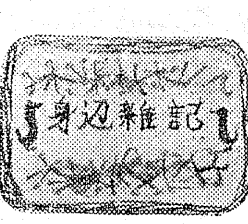 身辺雜記